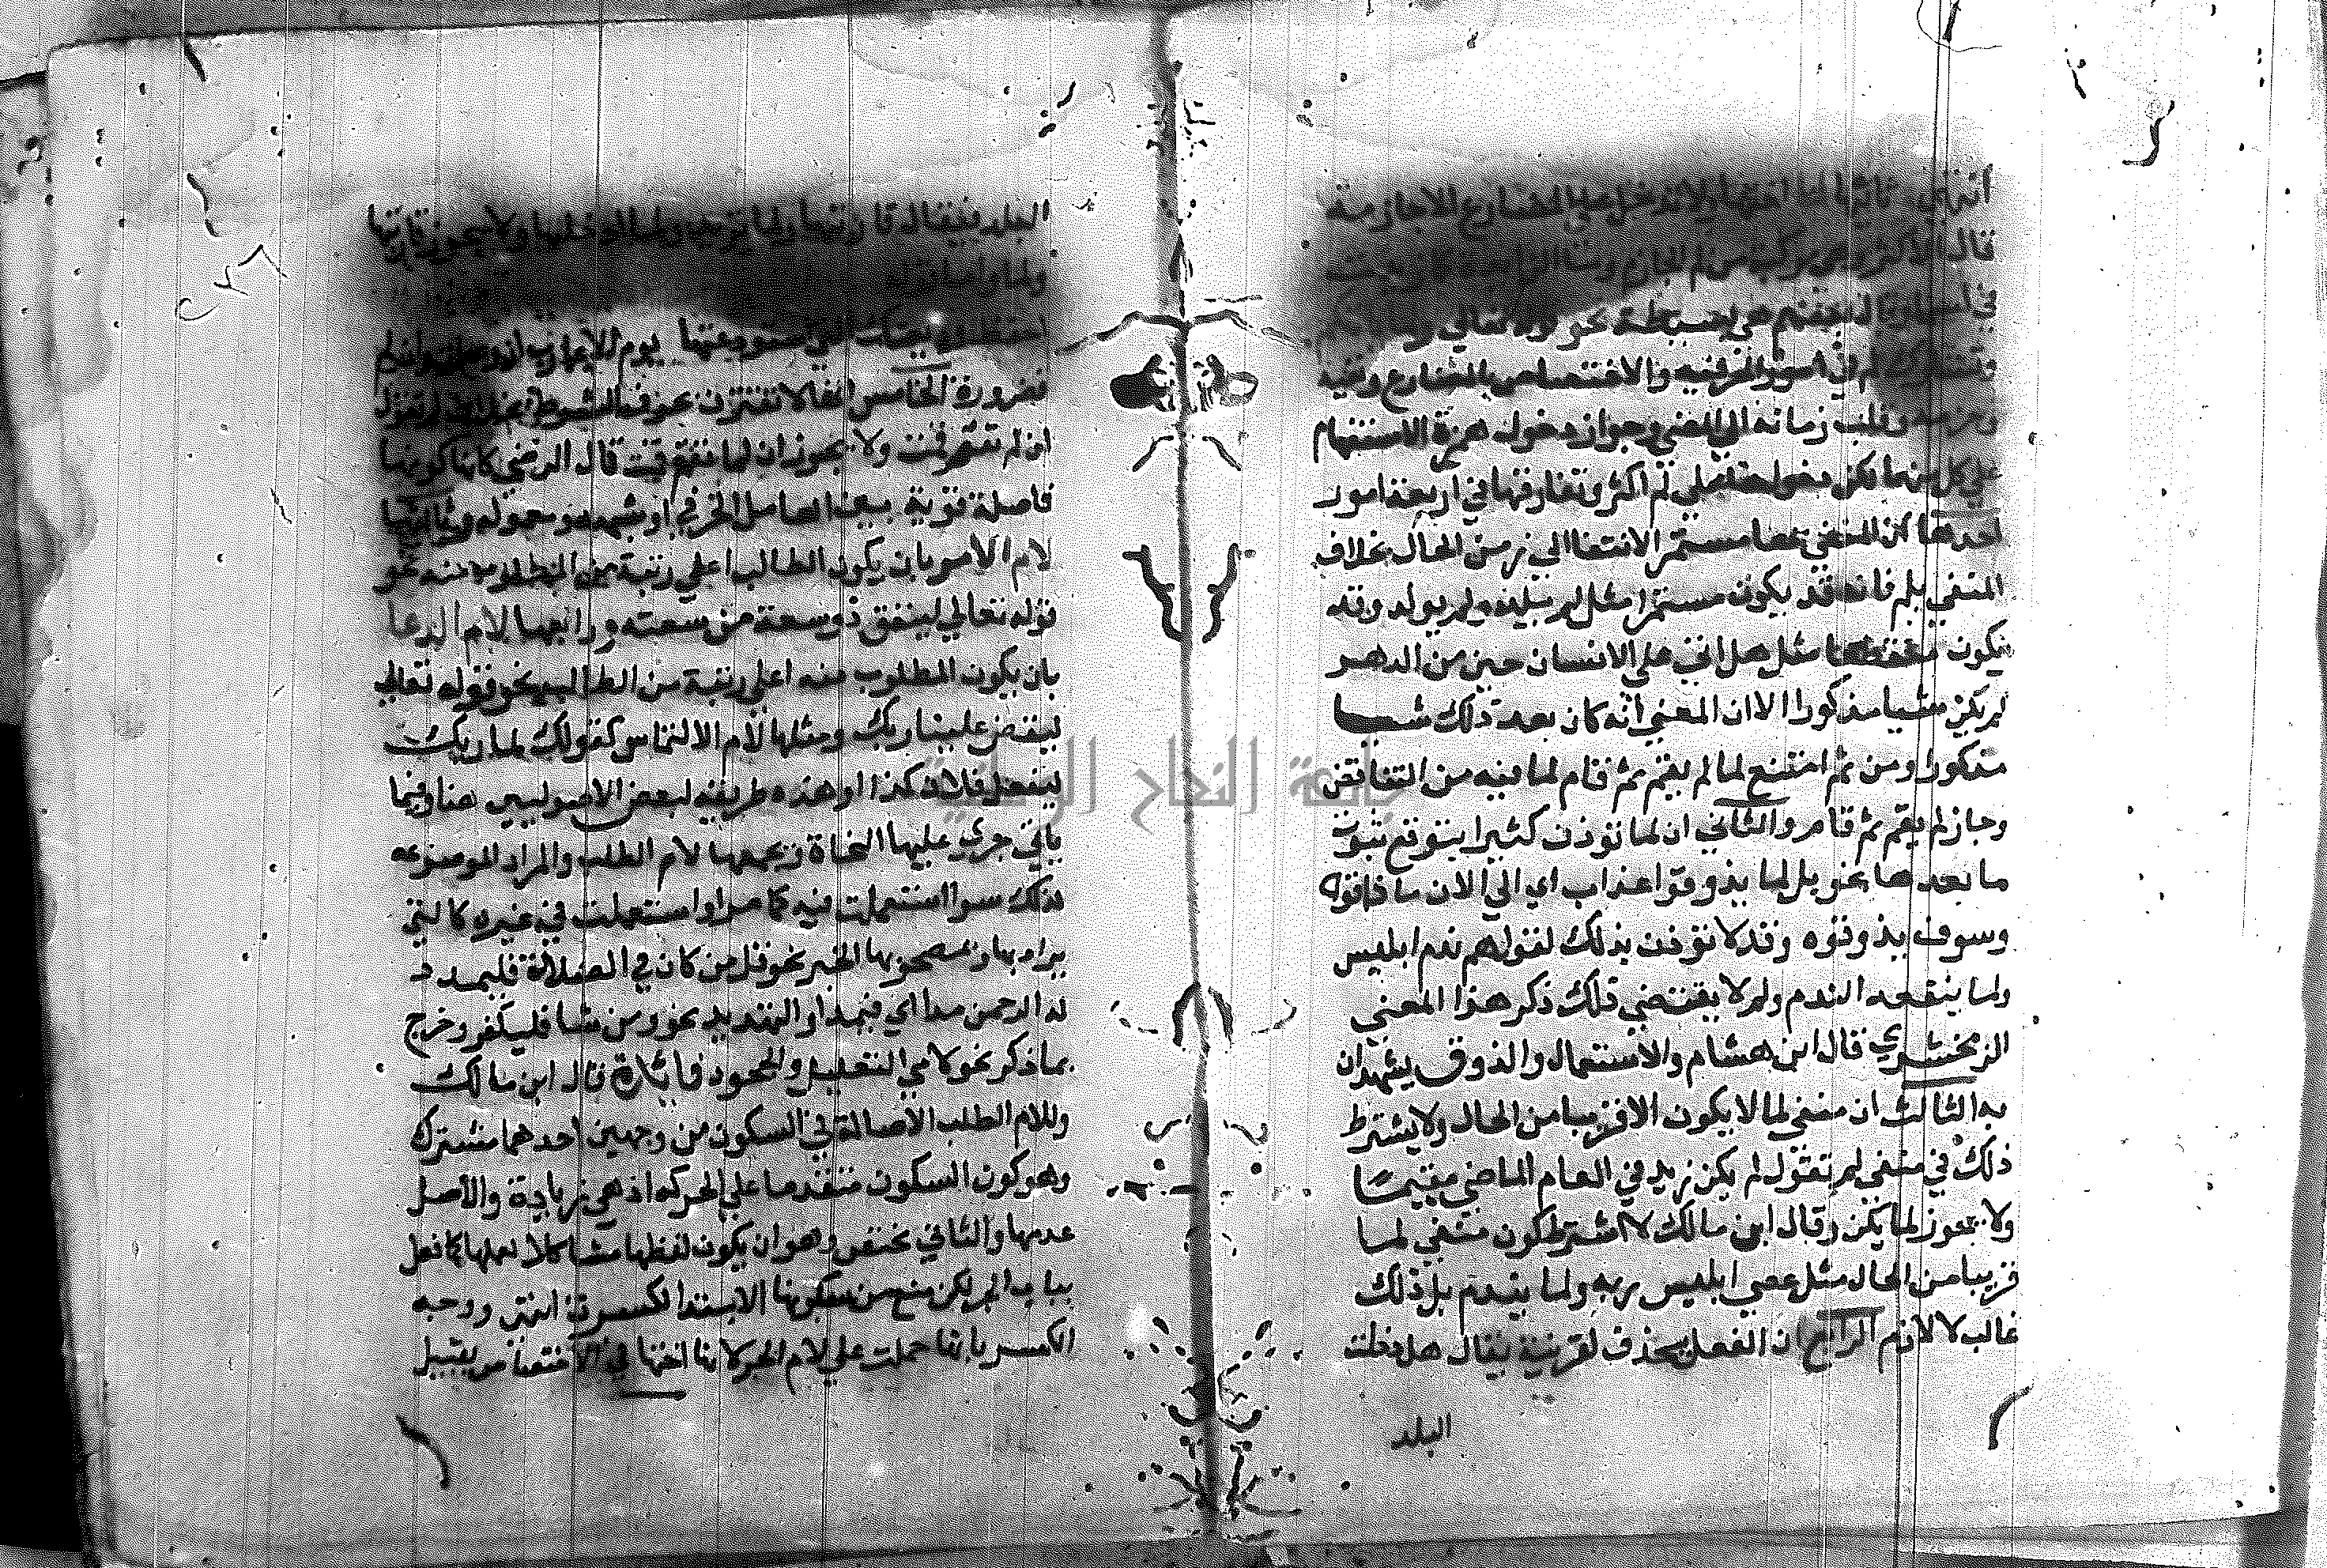 انتهى ثالثها لما اختها ولا تدخل على المضارع الا جازمة
قال الاكثر هي مركبة من لم الجازمة وما
في بعضهم هي بسيطة نحو قوله تعالى
لم في الحرفيه والاختصاص بالمضارع ونفيه
وجزمه وقلب زمانه الي المضي وجواز دخول همزة الاستفهام
علي كل منهما لكن دخولها علي لم اكثر وتفارقها في اربعة امور
احدها ان المنفي بها مستمر الانتفا الي زمن الحال بخلاف
المنفي بلم فانه قد يكون مستمرا مثل لم يلد ولم يولد وقد
يكون منقطعا مثل هل اتي علي الانسان حين من الدهر
لم يكن شيا مذكورا الا ان المعني انه كان بعد ذلك شيا
مذكورا ومن ثم امتنع لما لم يقم ثم قام لما فيه من التناقض
وجاز لم يقم ثم قام والثاني ان لما توذن كثيرا بتوقع ثبوت
ما بعدها نحو بل لما يذوقوا عذاب اي الي الان ما ذاقوه
وسوف يذوقوه وقد لا توذن بذلك لقولهم ندم ابليس
ولما ينفعه الندم ولم لا يقتضي ذلك ذكر هذا المعني
الزمخشري قال ابن هشام والاستعمال والذوق يشهدان
به الثالث ان منفي لما لا يكون الا قريبا من الحال ولا يشترط
ذلك في منفي لم تقول لم يكن زيد في العام الماضي مقيمًا
ولا يجوز لما يكن وقال ابن مالك لا يشترط كون منفي لما
قريبا من الحال مثل عصي ابليس ربه ولما يندم بل ذلك
غالب لا لازم الرابع ان الفعل يحذف لقرينة يقال هل دخلت
البلد
البلد فيقال قاربتها ولما تريد ولما ادخلها ولا يجوز قاربتها
ولم
احفظ وديعتك التي استودعتها يوم الاعازب ان وصلت وان لم
فضرورة الخامس انها لا تقترن بحرف الشرط بخلاف لم تقول
ان لم تقم قمت ولا يجوز ان لما تقم قمت قال الرضي كانها كونها
فاصلة قوية بين العامل الحرفي او شبهه ومعموله وثالثها
لام الامر بان يكون الطالب اعلي رتبة من المطلوب منه نحو
قوله تعالي لينفق ذو سعة من سعته ورابعها لام الدعا
بان يكون المطلوب منه اعلي رتبة من الطالب نحو قوله تعالي
ليقض علينا ربك ومثلها لام الالتماس كقولك لمساويك
ليفعل فلان كذا او هذه طريقه لبعض الاصوليين هنا وفيما
ياتي جري عليها النحاة ويجمعها لام الطلب والمراد الموضوعه
لذلك سوا استعملت فيه كما مر او استعملت في غيره كالتي
يراد بها وبمصحوبها الخبر نحو قل من كان في الضلالة فليمدد
له الرحمن مدا اي فيمد او التهديد نحو ومن شا فليكفر وخرج
بما ذكر نحو لامي التعليل والجحود فايدة قال ابن مالك
وللام الطلب الاصالة في السكون من وجهين احدهما مشترك
وهو كون السكون متقدما علي الحركة اذ هي زيادة والاصل
عدمها والثاني مختص وهو ان يكون لفظها مشاكلا لعملها كما فعل
بباب الجر لكن منع من سكونها الابتدا فكسرت انتهي ووجه
الكسر بانها حملت علي لام الجر لانها اختها في الاختصاص بقبيل
جامعة النجاح الوطنية